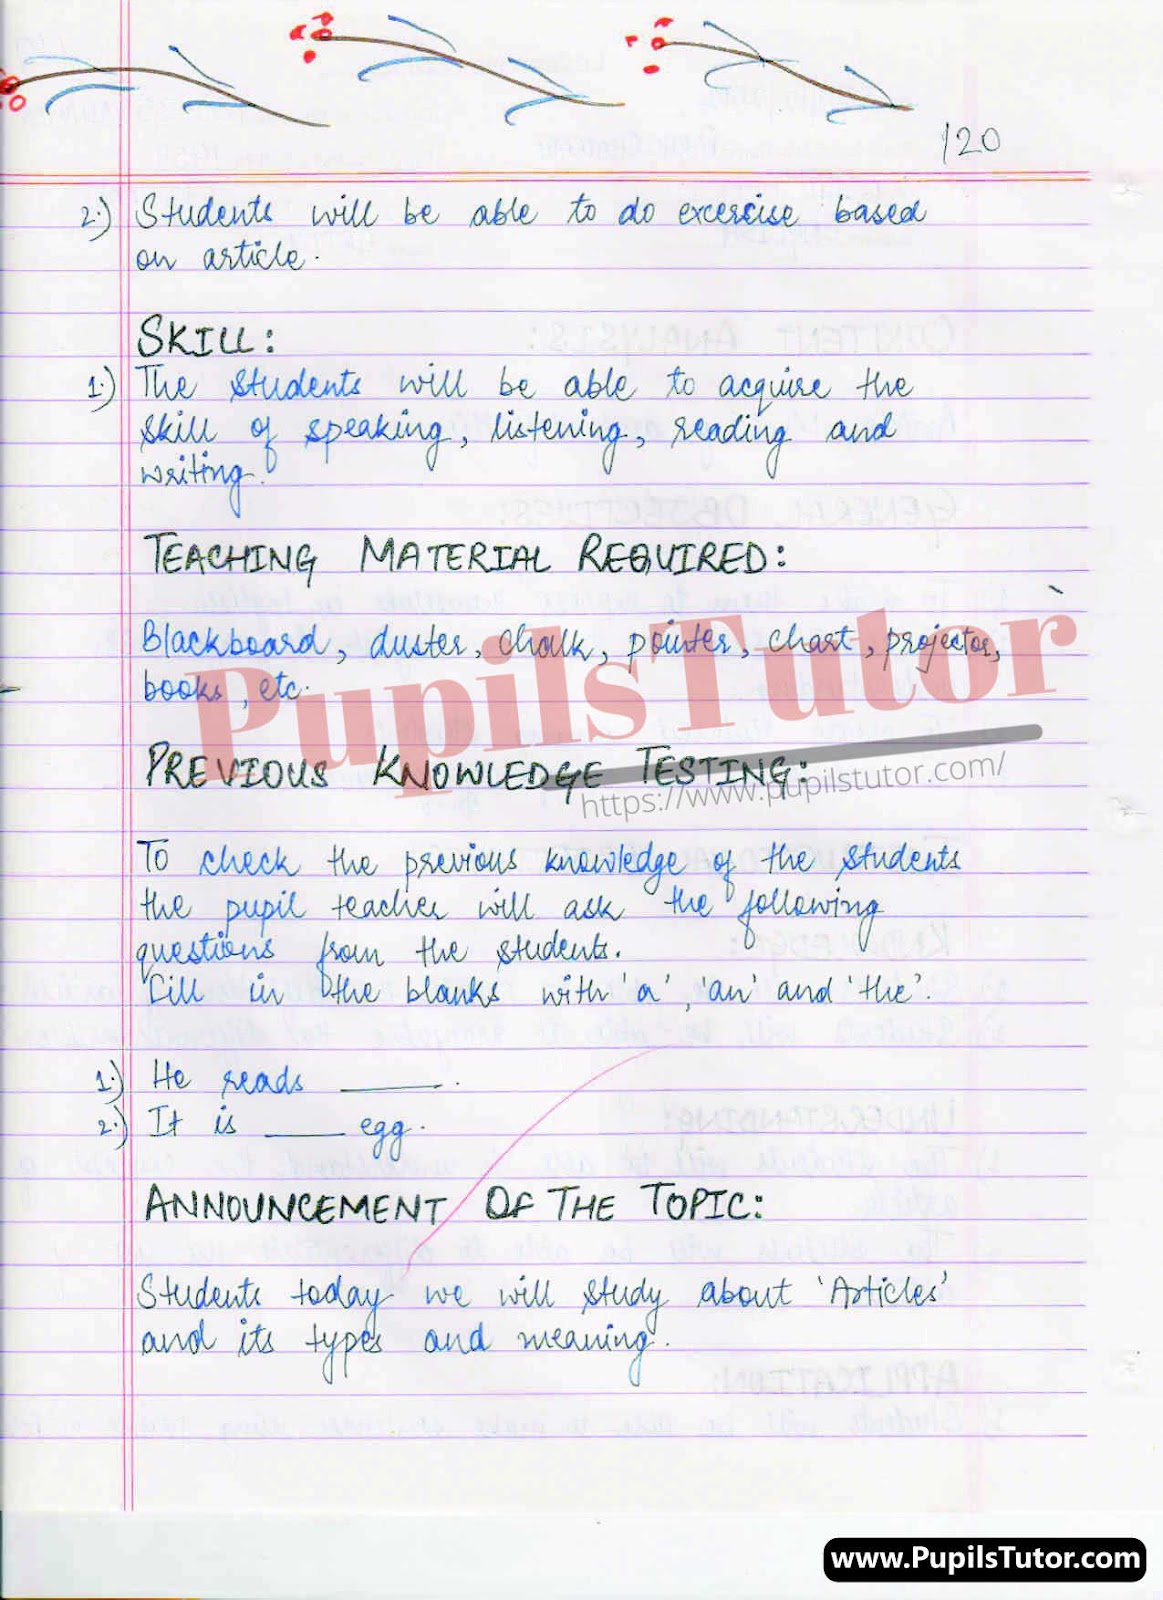 120
2.) Students will be able to do excercise based
on article.
SKILL:
1.) The students will be able to acquire the
skill of speaking, listening, reading and
writing.
TEACHING MATERIAL REQUIRED:
Blackboard, duster, chalk, pointer, chart, projector,
books, etc.
PupilsTutor
PREVIOUS KNOWLEDGE TESTING:
https://www.pupilstutor.com/
To check the previous knowledge of the students
the pupil teacher will ask the following
questions from the students.
Fill in the blanks with 'a', 'an' and 'the'.
1.) He reads ______.
2.) It is _____ egg.
ANNOUNCEMENT OF THE TOPIC:
Students today we will study about 'Articles'
and its types and meaning.
www.PupilsTutor.com